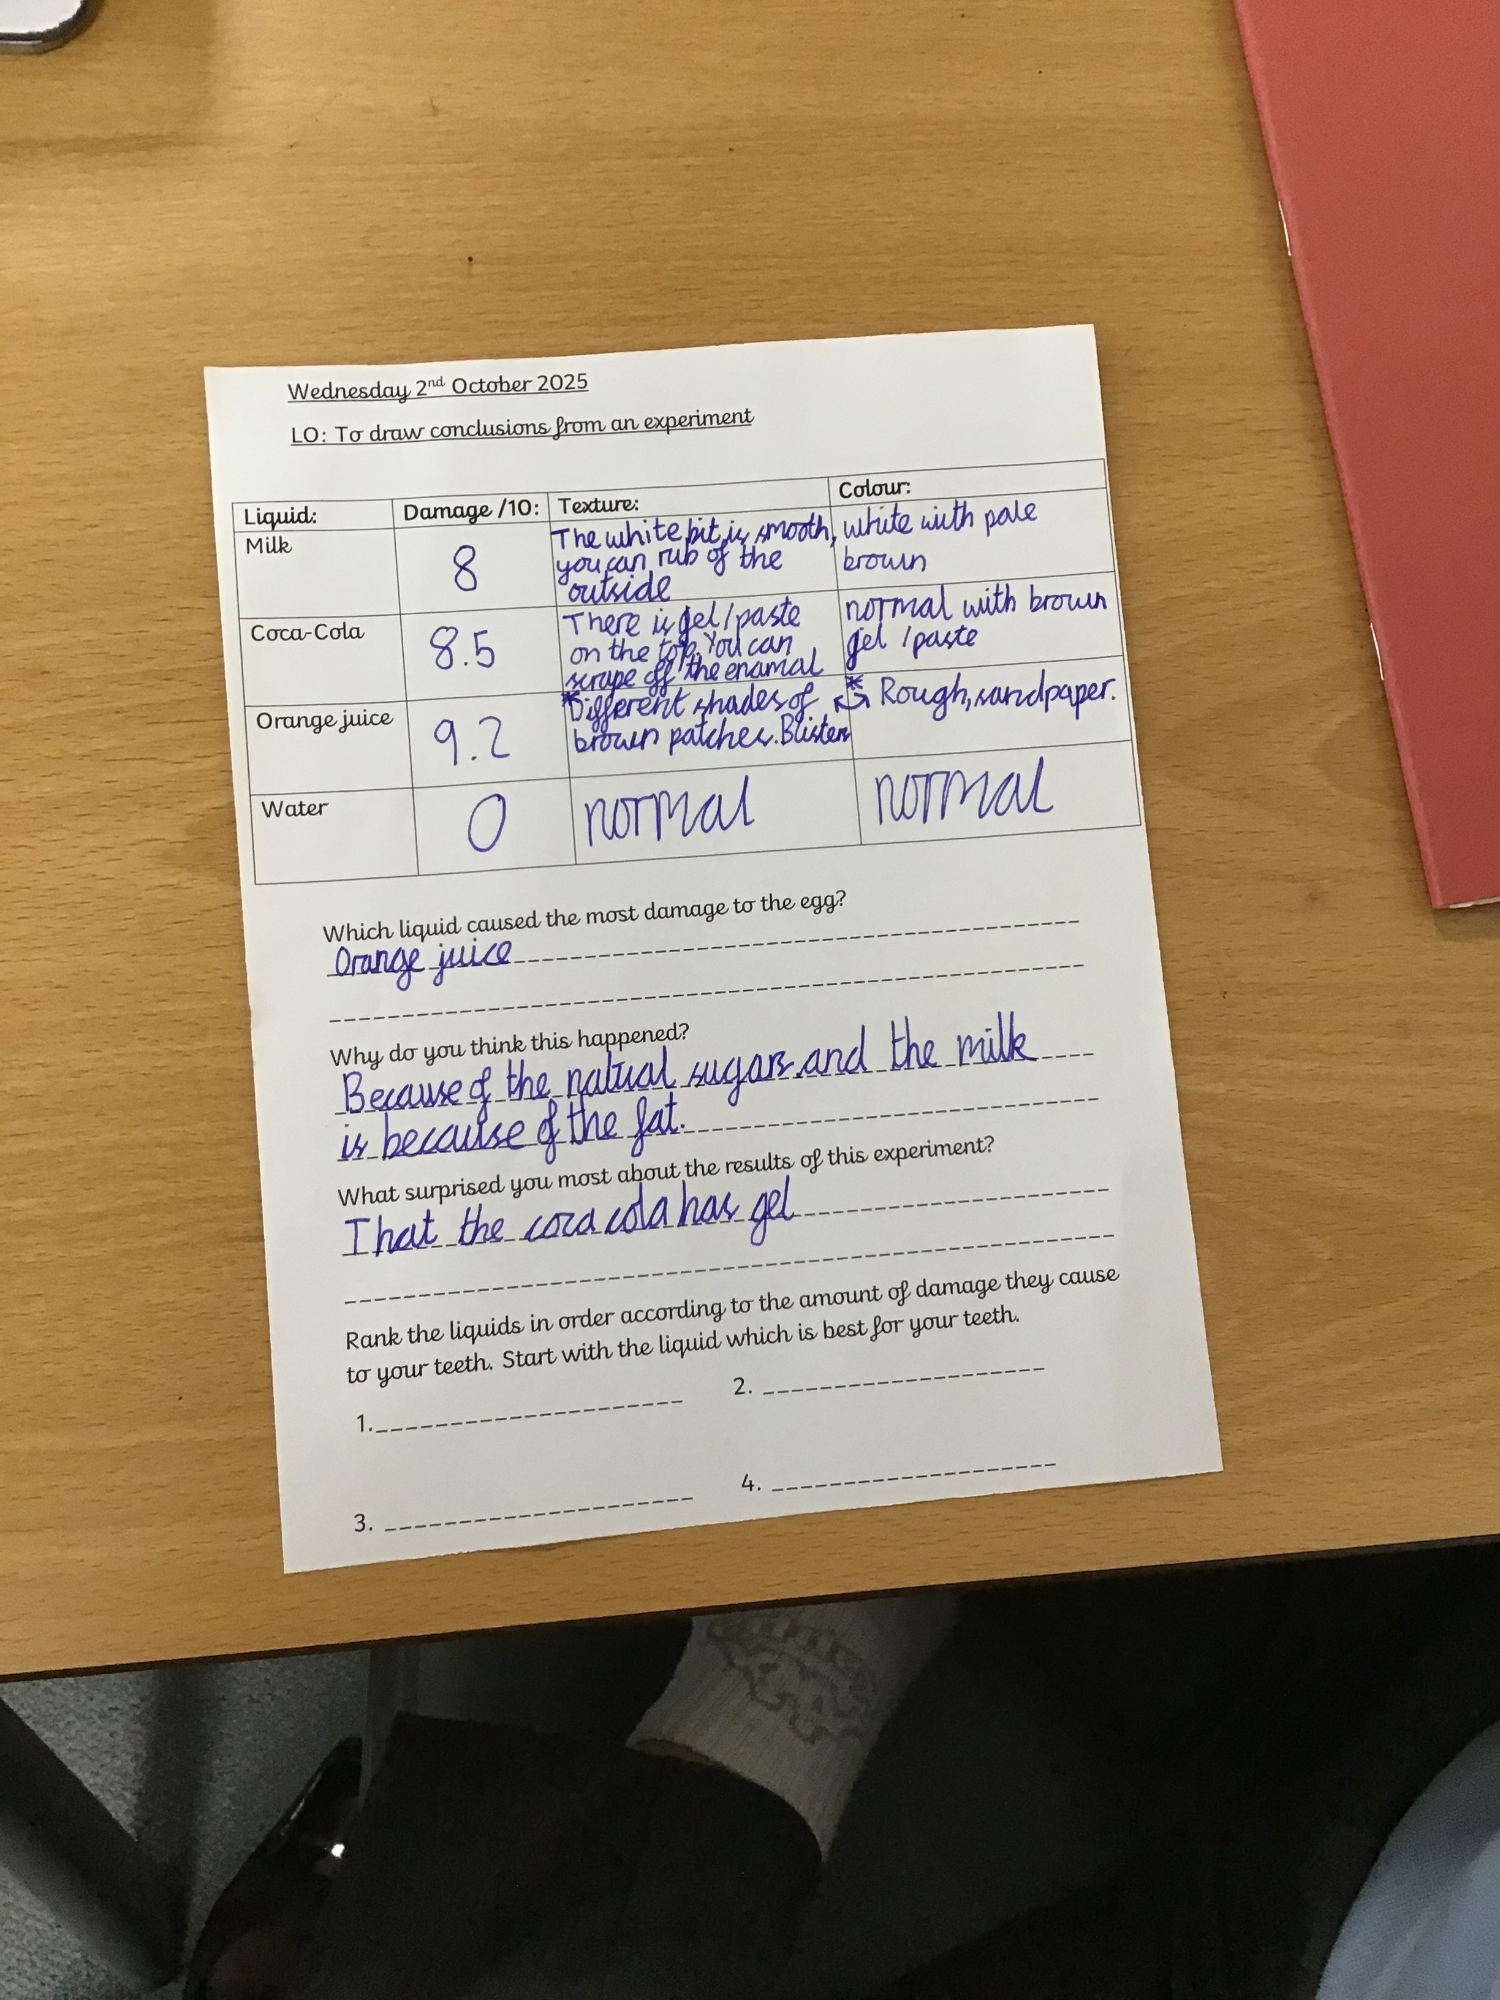 Wednesday 2nd October 2025
LO: To draw conclusions from an experiment
Liquid: Damage /10: Texture: Colour:
Milk
8
The white bit is smooth,
you can rub of the
outside
white with pale
brown
Coca-Cola
8.5
There is gel/paste
on the top. You can
scrape off the enamal
normal with brown
gel /paste
Orange juice
9.2
*Different shades of
brown patches. Blisters
* Rough, sandpaper.
Water
0
normal
normal
Which liquid caused the most damage to the egg?
Orange juice
Why do you think this happened?
Because of the natual sugars and the milk
is because of the fat.
What surprised you most about the results of this experiment?
That the coca cola has gel
Rank the liquids in order according to the amount of damage they cause
to your teeth. Start with the liquid which is best for your teeth.
1. 2.
3. 4.